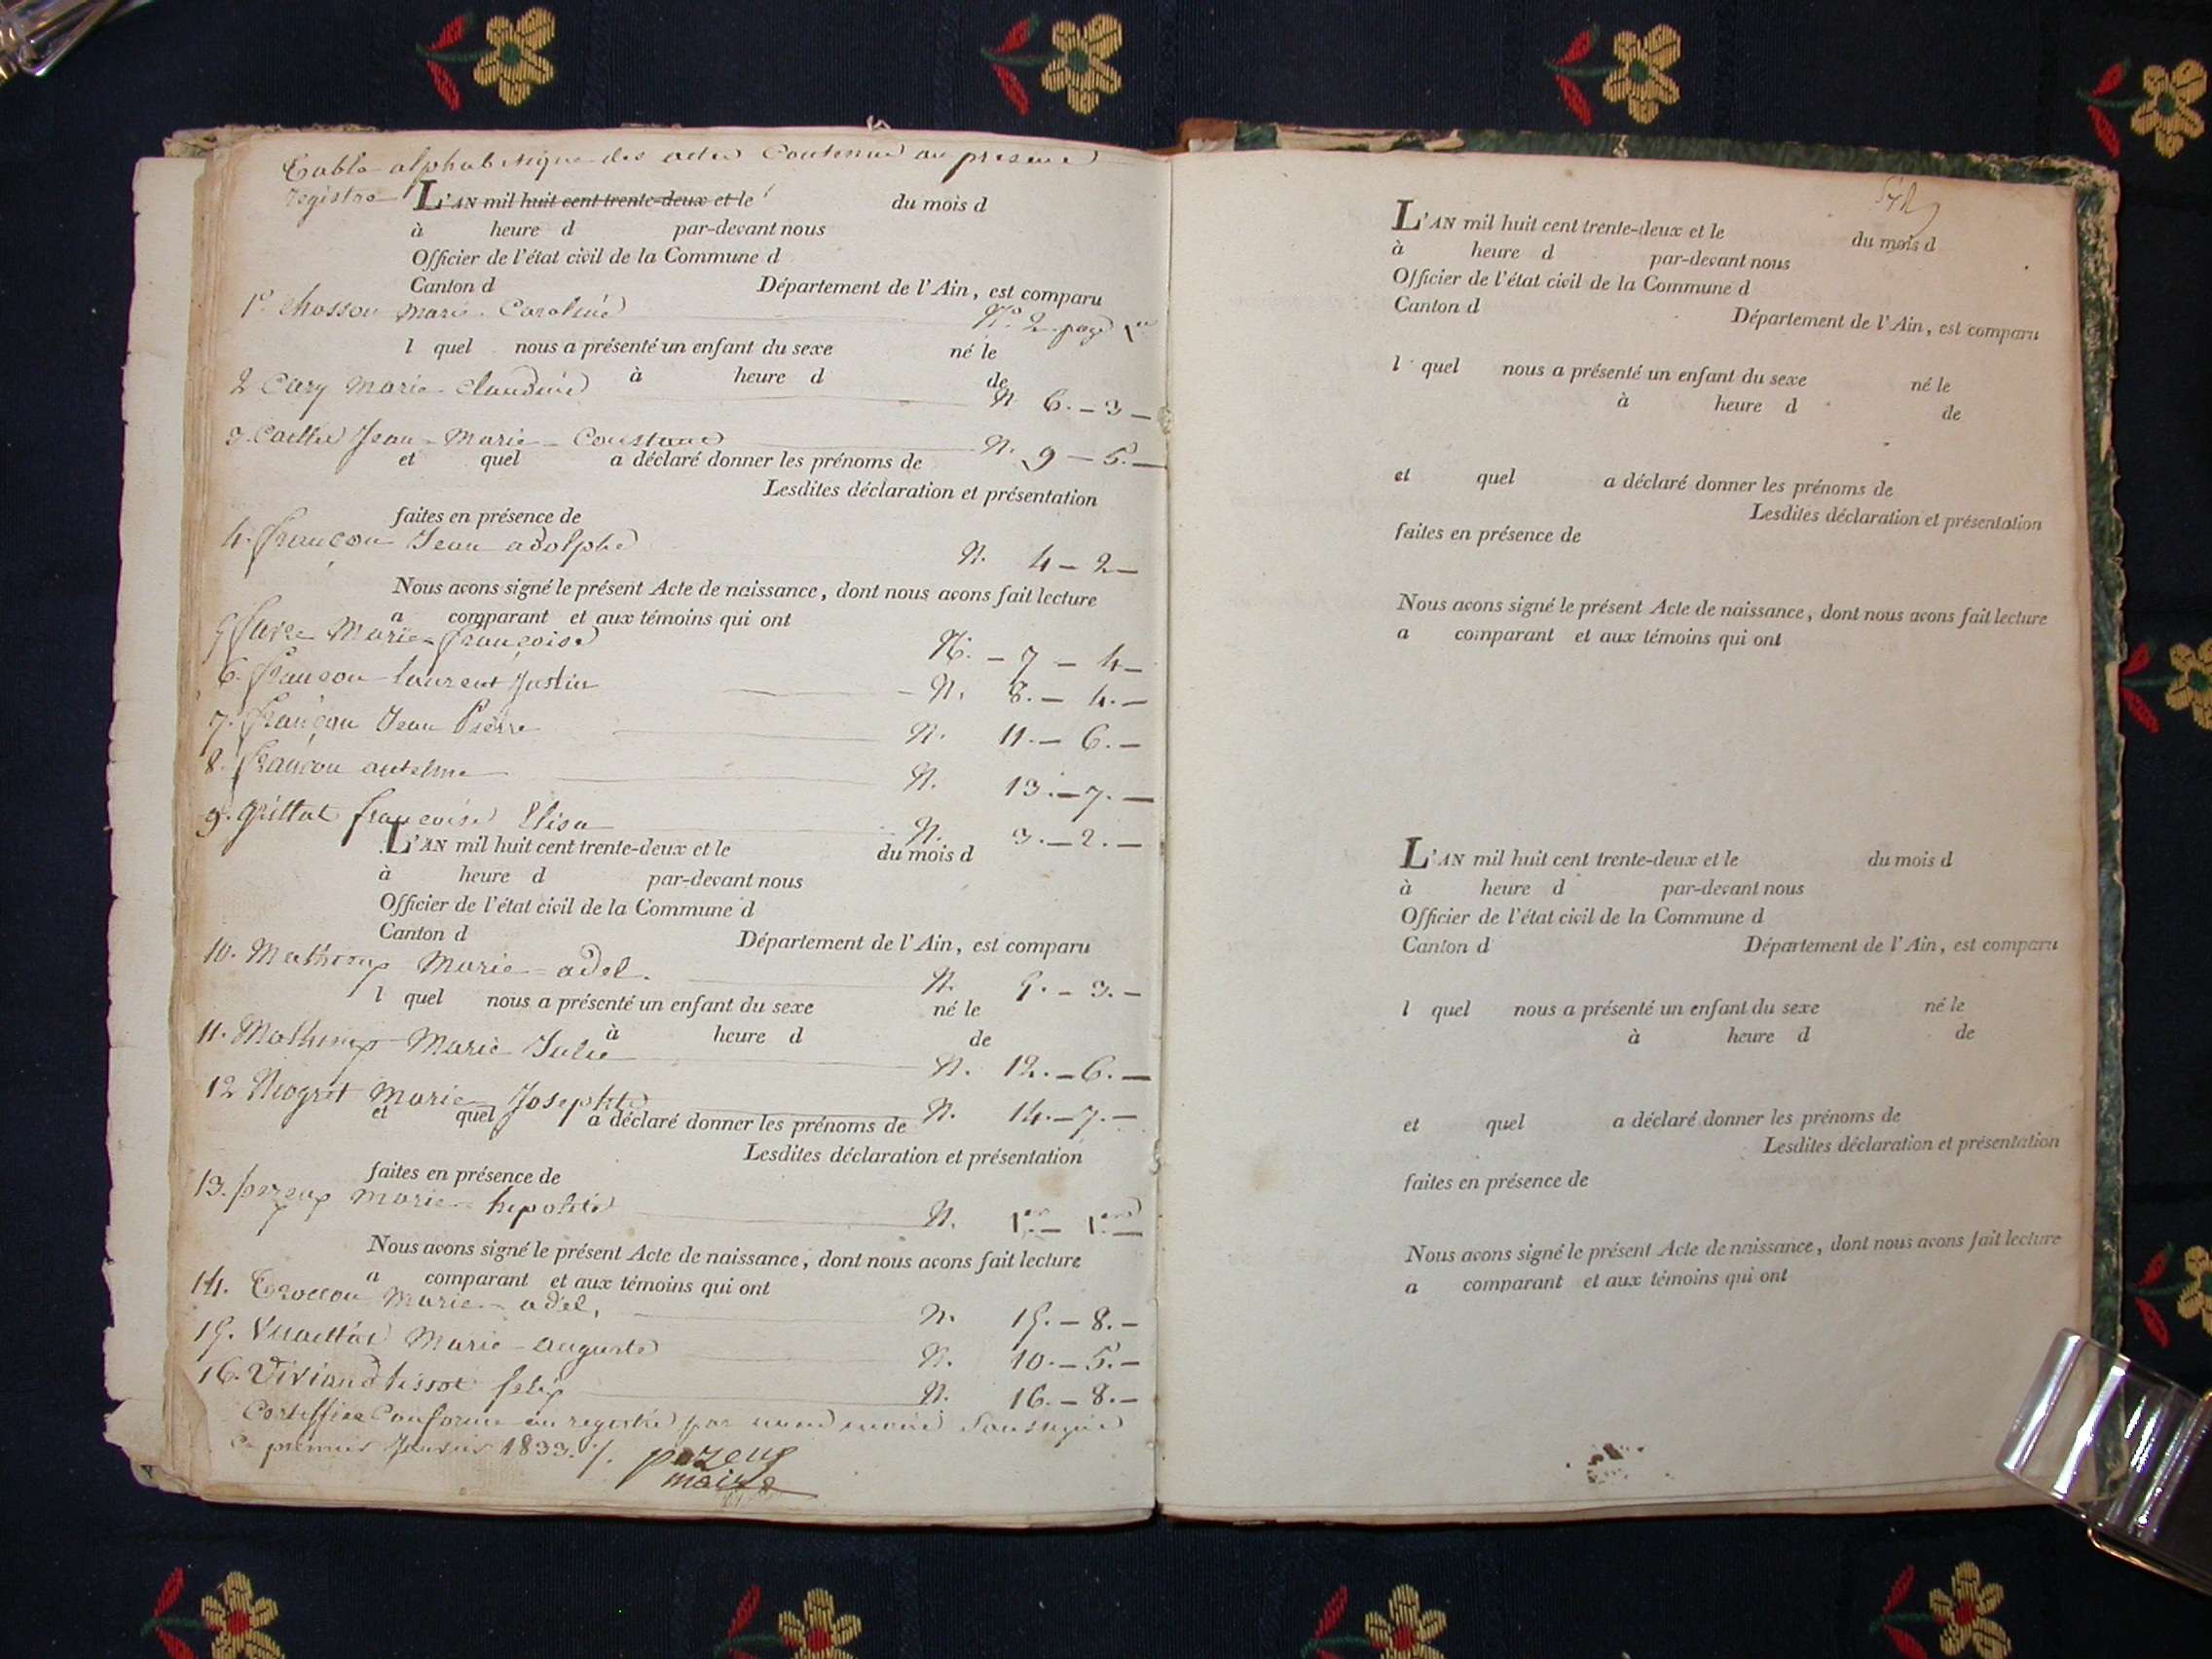 Table alphabetique des actes Contenus au present
registre L'AN mil huit cent trente-deux et le du mois d
à heure d par-devant nous
Officier de l'état civil de la Commune d
Canton d Département de l'Ain, est comparu
1º. Chosson Marie Caroline N.º 2 page 1re
l quel nous a présenté un enfant du sexe né le
à heure d de
2 Cary Marie Claudine N. 6. – 3 –
3. Jean – Marie – Constant N. 9 – 5. –
et quel a déclaré donner les prénoms de
Lesdites déclaration et présentation
faites en présence de
4. françon Jean adolphe N. 4 – 2 –
Nous avons signé le présent Acte de naissance, dont nous avons fait lecture
a comparant et aux témoins qui ont
5 Marie – françoise N. – 7 – 4 –
6. françon laurent Justin N. 8. – 4. –
7. françon Jean Pierre N. 11. – 6. –
8. françon antelme N. 13. – 7. –
9. Grillat françoise Elisa N. 3. – 2. –
L'AN mil huit cent trente-deux et le du mois d
à heure d par-devant nous
Officier de l'état civil de la Commune d
Canton d Département de l'Ain, est comparu
10. Marie – adel. N. 5. – 3. –
l quel nous a présenté un enfant du sexe né le
à heure d de
11. Marie Julie N. 12. – 6. –
12 Niogret Marie Josephte N. 14. – 7. –
et quel a déclaré donner les prénoms de
Lesdites déclaration et présentation
faites en présence de
13. Marie – hipolite N. 1er – 1ere
Nous avons signé le présent Acte de naissance, dont nous avons fait lecture
a comparant et aux témoins qui ont
14. Marie – adel, N. 15. – 8. –
15. Marie – auguste N. 10. – 5. –
16. Viviand tissot felix N. 16. – 8. –
Certiffiée Conforme au registre par nous maire Soussigné
Ce premier Janvier 1833. /.
maire
L'AN mil huit cent trente-deux et le du mois d
à heure d par-devant nous
Officier de l'état civil de la Commune d
Canton d Département de l'Ain, est comparu
l quel nous a présenté un enfant du sexe né le
à heure d de
et quel a déclaré donner les prénoms de
Lesdites déclaration et présentation
faites en présence de
Nous avons signé le présent Acte de naissance, dont nous avons fait lecture
a comparant et aux témoins qui ont
L'AN mil huit cent trente-deux et le du mois d
à heure d par-devant nous
Officier de l'état civil de la Commune d
Canton d Département de l'Ain, est comparu
l quel nous a présenté un enfant du sexe né le
à heure d de
et quel a déclaré donner les prénoms de
Lesdites déclaration et présentation
faites en présence de
Nous avons signé le présent Acte de naissance, dont nous avons fait lecture
a comparant et aux témoins qui ont